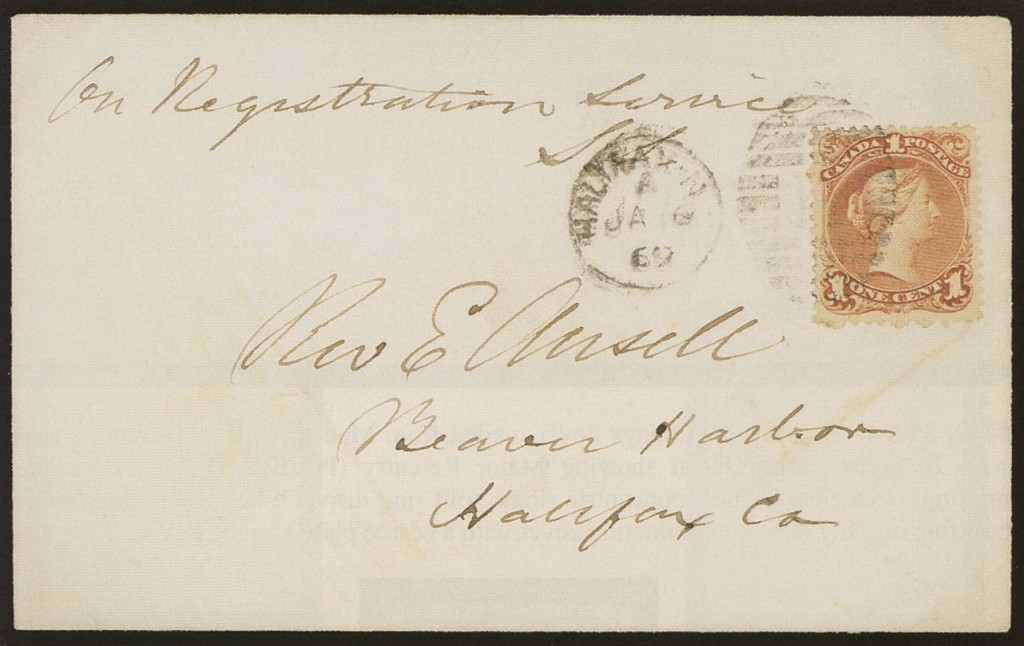 On Registration Service
HALIFAX·N
A
JA
69
1
CANADA POSTAGE
1 ONE CENT 1
Rev E Ansell
Beaver Harbor
Halifax Co